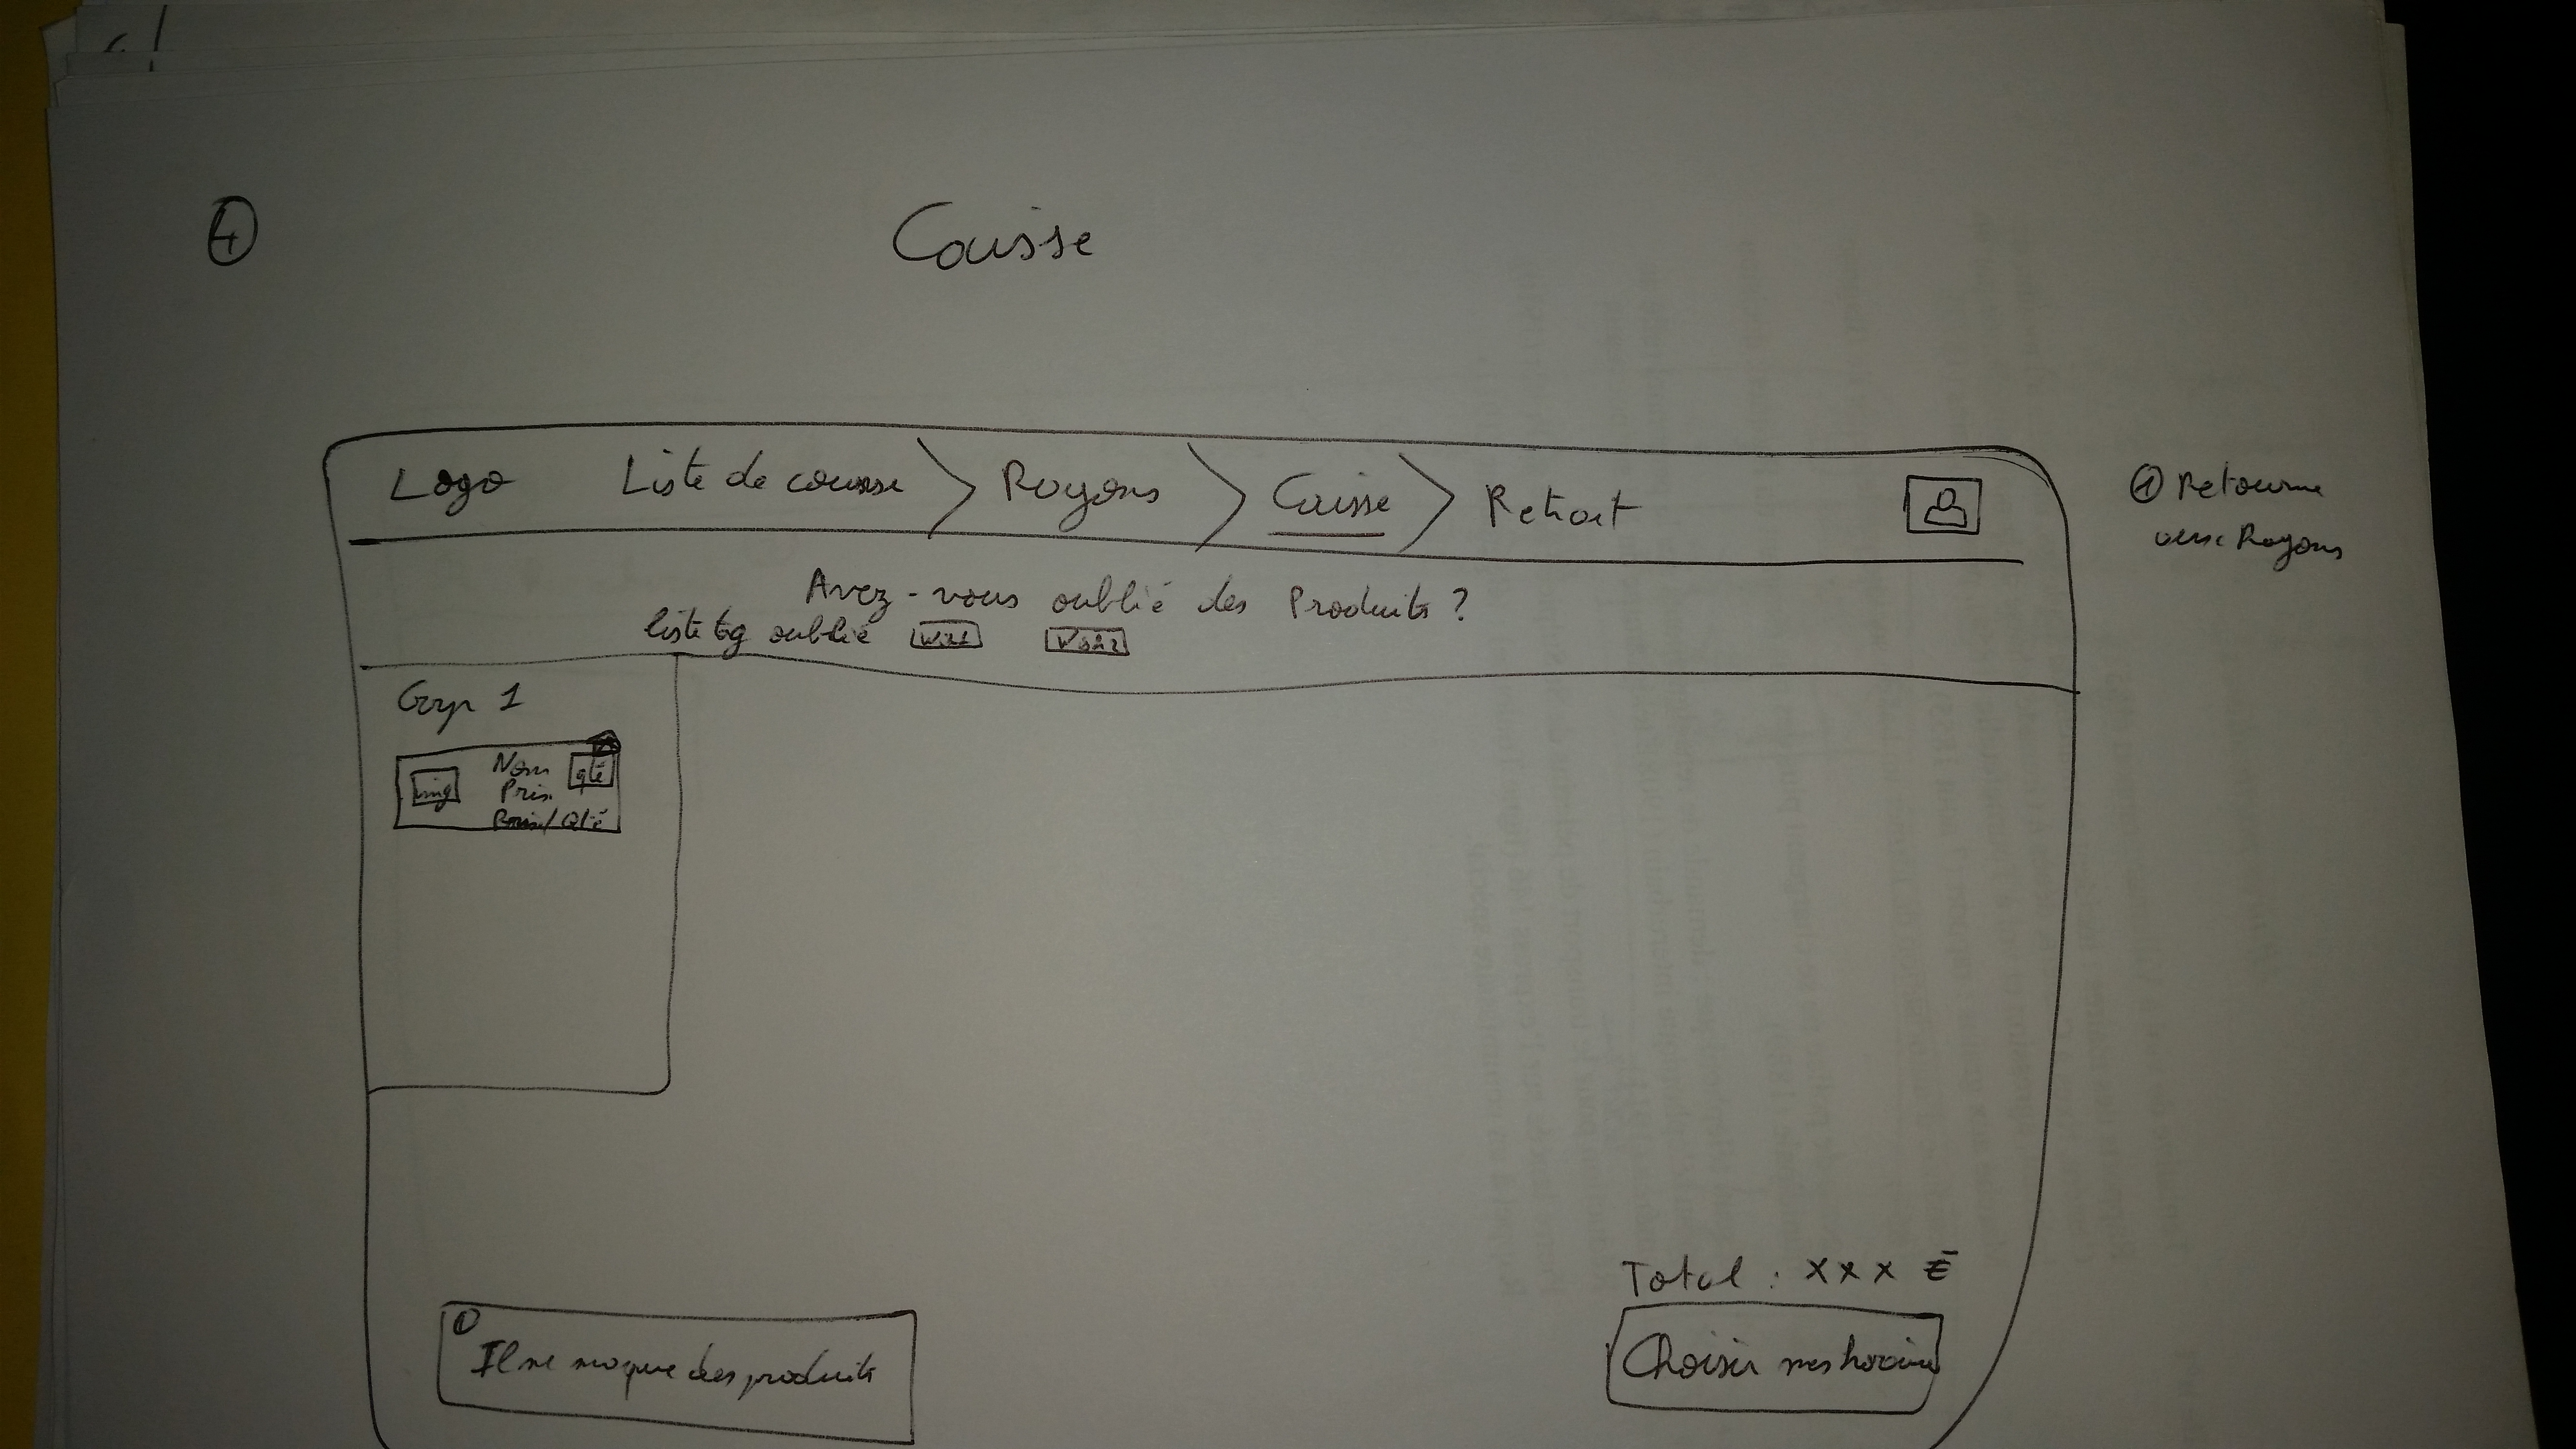 4
Caisse
Logo Liste de course Rayons Caisse Retrait
① Retourne
vers Rayons
Avez-vous oublié des Produits ?
liste tag oublié
Group 1
img Nom qté
Prix
Prix/Qté
Total : xxx €
① Il me manque des produits
Choisir mes horaires